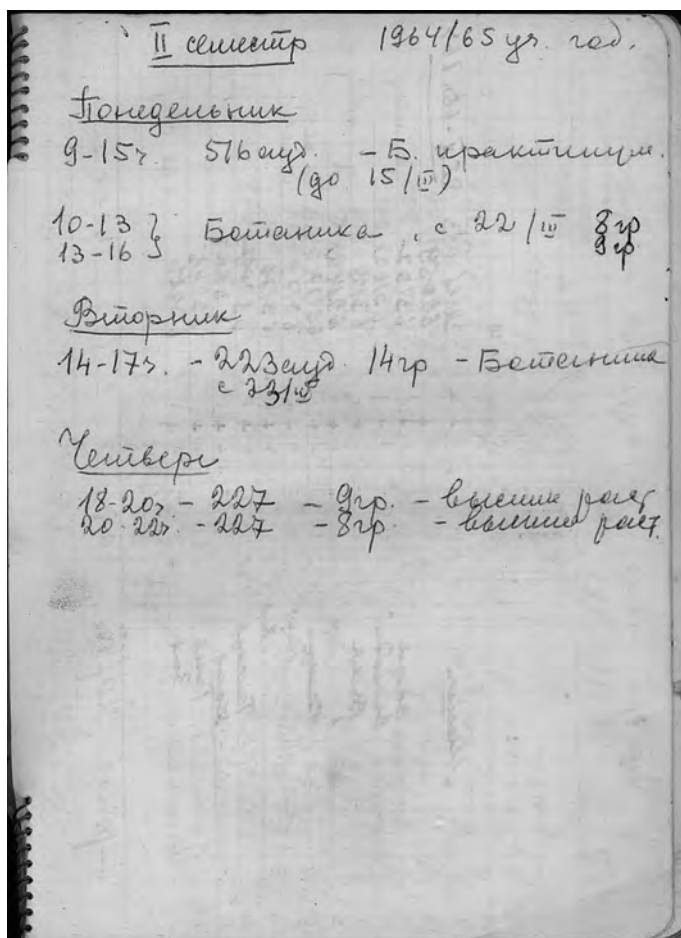 II семестр 1964/65 уч. год.
Понедельник
9-15ч. 516 ауд. - Б. практикум.
(до 15/III)
10-13 } Ботаника, с 22/III 8гр
13-16 } 9гр
Вторник
14-17ч. - 223 ауд. 14гр - Ботаника
с 23/III
Четверг
18-20ч - 227 - 9гр. - высшие раст.
20-22ч. - 227 - 8гр. - высшие раст.